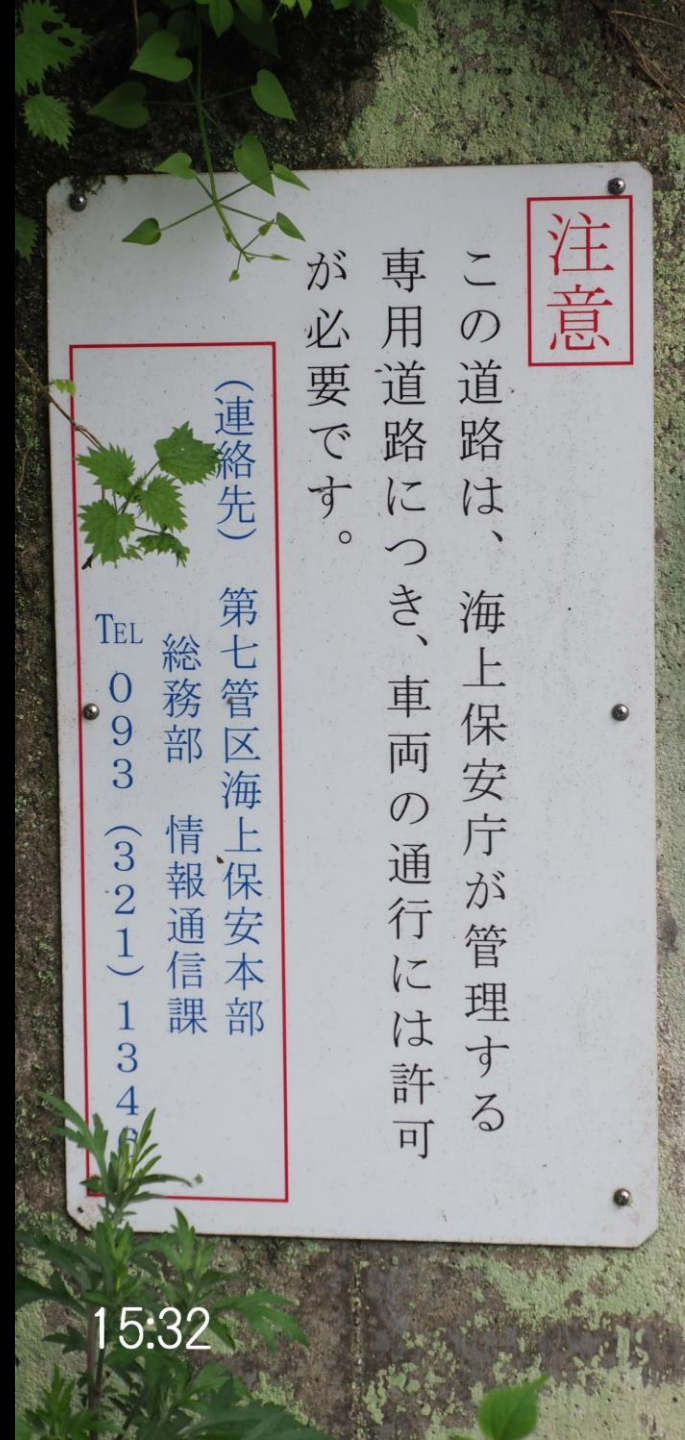 注意
この道路は、海上保安庁が管理する
専用道路につき、車両の通行には許可
が必要です。
（連絡先）　第七管区海上保安本部
総務部　情報通信課
TEL ０９３（３２１）１３４
15:32